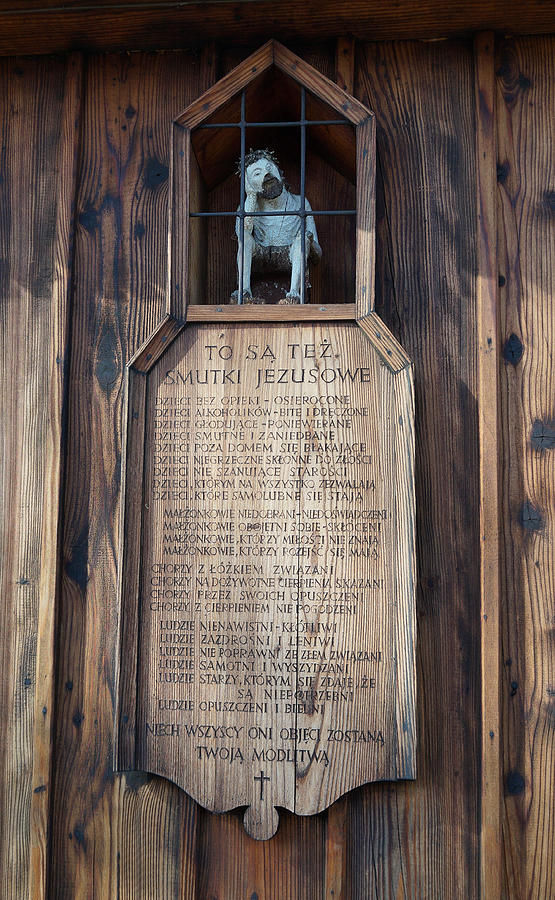 TÓ SĄ TEŻ
SMUTKI JEZUSOWE
DZIECI BEZ OPIEKI - OSIEROCONE
DZIECI ALKOHOLIKÓW - BITE I DRĘCZONE
DZIECI GŁODUJĄCE - PONIEWIERANE
DZIECI SMUTNE I ZANIEDBANE
DZIECI POZA DOMEM SIĘ BŁĄKAJĄCE
DZIECI NIEGRZECZNE SKŁONNE DO ZŁOŚCI
DZIECI NIE SZANUJĄCE STAROŚCI
DZIECI, KTÓRYM NA WSZYSTKO ZEZWALAJĄ
DZIECI, KTÓRE SAMOLUBNE SIĘ STAJĄ
MAŁŻONKOWIE NIEDOBRANI - NIEDOŚWIADCZENI
MAŁŻONKOWIE OBOJĘTNI SOBIE - SKŁÓCENI
MAŁŻONKOWIE, KTÓRZY MIŁOŚCI NIE ZNAJĄ
MAŁŻONKOWIE, KTÓRZY ROZEJŚĆ SIĘ MAJĄ
CHORZY Z ŁÓŻKIEM ZWIĄZANI
CHORZY NA DOŻYWOTNE CIERPIENIA SKAZANI
CHORZY PRZEZ SWOICH OPUSZCZENI
CHORZY Z CIERPIENIEM NIE POGODZENI
LUDZIE NIENAWISTNI - KŁÓTLIWI
LUDZIE ZAZDROŚNI I LENIWI
LUDZIE NIE POPRAWNI ZE ZŁEM ZWIĄZANI
LUDZIE SAMOTNI I WYSZYDZANI
LUDZIE STARZY, KTÓRYM SIĘ ZDAJE, ŻE
SĄ NIEPOTRZEBNI
LUDZIE OPUSZCZENI I BIEDNI
NIECH WSZYSCY ONI OBJĘCI ZOSTANĄ
TWOJĄ MODLITWĄ